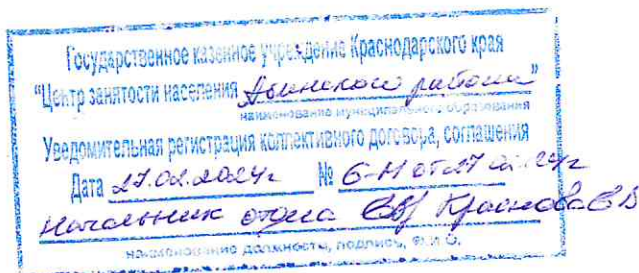 Государственное казенное учреждение Краснодарского края
"Центр занятости населения Динского района"
наименование муниципального образования
Уведомительная регистрация коллективного договора, соглашения
Дата 27.02.2024г № 6-Н от 27.02.24г
Начальник отдела Краснова
наименование должности, подпись, Ф.И.О.